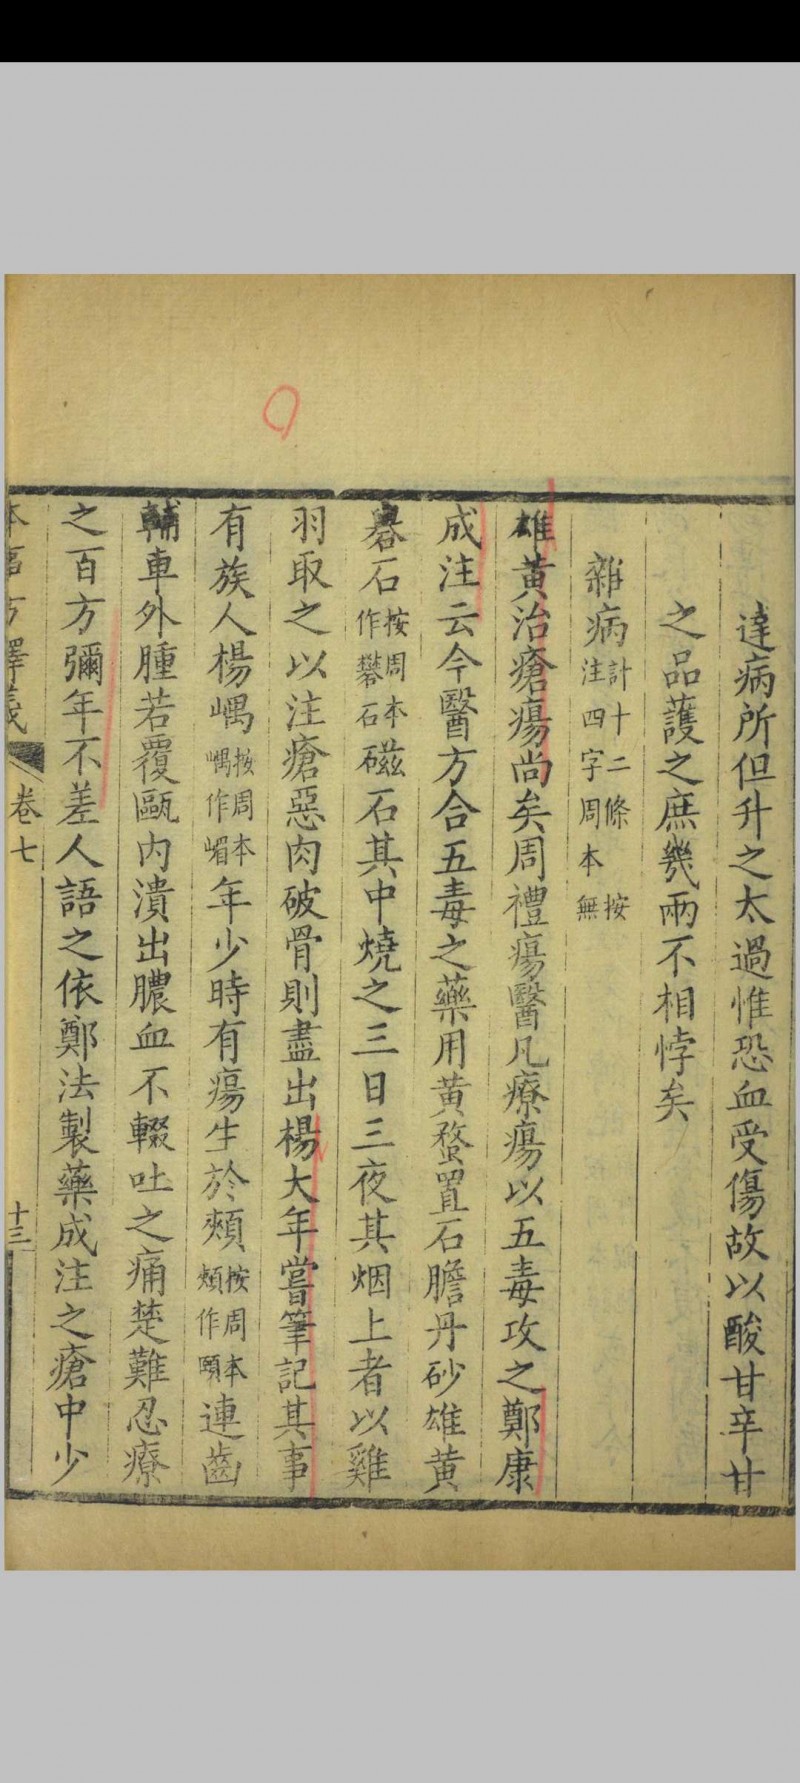 達病所但升之太過惟恐血受傷故以酸甘辛甘
之品護之庶幾兩不相悖矣
雜病計十二條按注四字周本無
雄黃治瘡瘍尚矣周禮瘍醫凡療瘍以五毒攻之鄭康
成注云今醫方合五毒之藥用黃蝥置石膽丹砂雄黃
礜石按周本作礬石磁石其中燒之三日三夜其烟上者以雞
羽取之以注瘡惡肉破骨則盡出楊大年嘗筆記其事
有族人楊嵎按周本嵎作嵋年少時有瘍生於頰按周本頰作頤連齒
輔車外腫若覆甌內潰出膿血不輟吐之痛楚難忍療
之百方彌年不差人語之依鄭法製藥成注之瘡中少
本事方釋義 卷七 十三